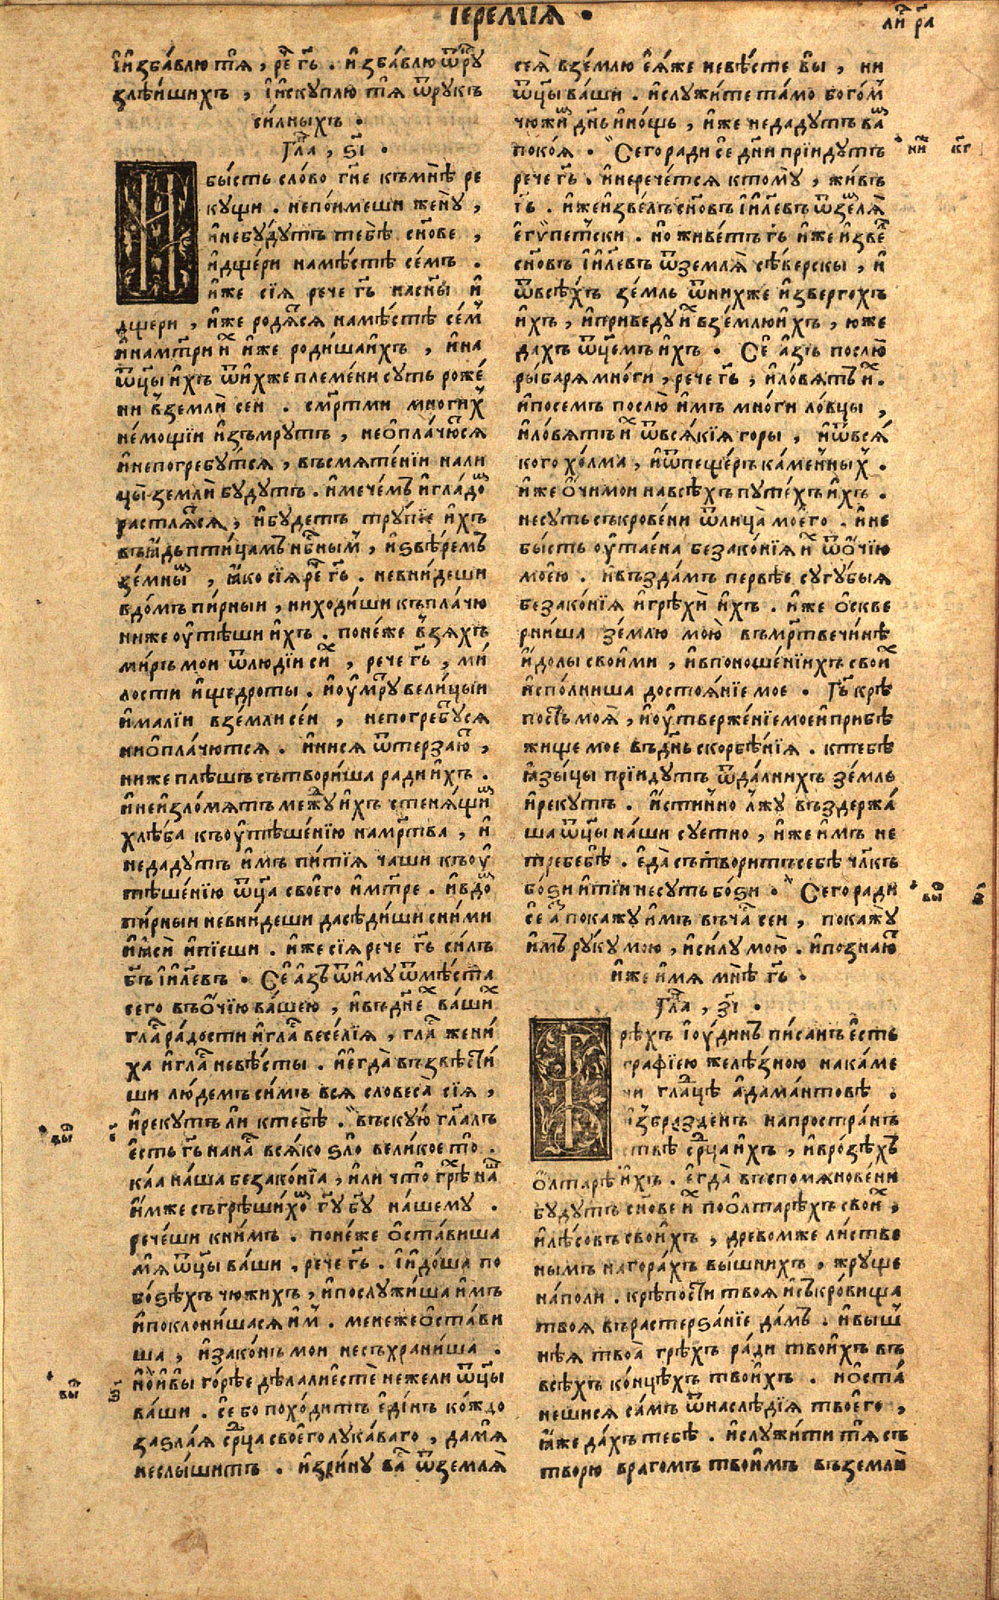 іеремїа •
лиⷭ҇ ра
і҆и҆збавлю тѧ̀, рⷱ҇е гь҃. и҆збавлю ѿрꙋ
злѣишихъ, і҆и҆скꙋплю тѧ ѿрꙋкъ
си́лныхъ.
Гла, ѕ҃і.
И бысть сло́во гн҃е къмнѣ ре
кꙋщи. непои́меши женꙋ̀,
и҆небꙋ́дꙋтъ тебѣ сн҃ове,
и҆дще́ри намѣ́стѣ се́мъ.
и҆́же сїѧ рече гь҃ насн҃ы и҆
дщери, и҆́же родѧ́сѧ намѣ́стѣ се́м
и҆нам҃три иⷯ и҆́же роди́ша и҆хъ, и҆на
ѿц҃ы и҆́хъ ѿни́хже племе́ни сꙋть роже́
ни в̾землѝ сеи. сме́ртми многиⷯ
не́мощїи и҆зъмрꙋтъ, нео҆пла́чюсѧ
и҆непогребꙋ́тсѧ, въсмѧте́нїи нали
цы̀ землѝ бꙋдꙋтъ. и҆мече́мъ и҆гла́дѡ
растлѧ́сѧ, и҆бꙋдетъ трꙋ́пїе и҆́хъ
въꙗ҆дь пти́цамъ нб҃нымъ, и҆ѕвѣре́мъ
зе́мнымъ, ꙗ҆́ко сїѧ рⷱ҇е гь҃. невни́деши
вдо́мъ пи́рныи, ниходи́ши къпла́чю
ниже оу҆тѣши и҆́хъ. поне́же в̾зѧхъ
ми́ръ мои ѿлюдїи сиⷯ, рече гь҃, ми́
лости и҆щедроты. и҆оу҆́мрꙋ вели́цыи
и҆ма́лїи взе́мли се́и, непогребꙋ́сѧ
нио҆пла́чютсѧ. и҆нисѧ ѿтерзаю҆,
ниже плѣшъ сътвори́ша ради и҆́хъ.
и҆неи҆зло́мѧтъ межꙋ и҆́хъ стенѧ́щиⷨ
хлѣба къоу҆тѣше́нїю нам҃ртва, и҆
недадꙋтъ и҆́мъ пи́тїѧ чаши къоу҆
тѣше́нїю ѿц҃а своего и҆м҃тре. и҆вдоⷨ
пи́рныи невни́деши даседи́ши сни́ми
и҆ꙗ҆си и҆пїеши. и҆́же сїѧ рече гь҃ си́лъ
бг҃ъ і҆и҃левъ. Се а҆́зъ ѿимꙋ ѿмѣ́ста
сего въо҆чїю ва́шею, и҆въдн҃еⷯ ва́шиⷯ
гла́ ра́дости и҆гла́ весе́лїѧ, гла́ жени́
ха и҆гла́ невѣ́сты. и҆егда̀ възвѣсти́
ши лю́демъ си́мъ всѧ словеса̀ сїѧ,
и҆рекꙋтъ ли ктебѣ. въскꙋю гл҃алъ
е҆сть гь҃ нанаⷭ҇ всѧко ѕло̀ велико́е то.
ка́а на́ша безако́нїа, и҆ли что̀ грѣⷯ наⷲ
и҆мже съгрѣши́хоⷨ гꙋ҃ бг҃ꙋ на́шемꙋ.
рече́ши кни́мъ. поне́же о҆ста́виша
мѧ ѿц҃ы ва́ши, рече гь҃. і҆и҆до́ша по
бо́ѕѣхъ чюжи́хъ, и҆послꙋжи́ша и҆́мъ
и҆поклони́шасѧ и҆́м. менеже о҆ста́ви
ша, и҆зако́нъ мои несъхрани́ша.
но и҆вы го́рѣе дѣлали е҆сте нежели ѿц҃ы
ва́ши. се бо похо́дитъ е҆ди́нъ ко́ждо
заѕла́ѧ ср҃ца своего лꙋка́ваго, дамѧ
неслы́шитъ. и҆зри́нꙋ ваⷭ҇ ѿземлѧ̀
сеѧ̀ взе́млю е҆ѧ́же невѣ́сте вы, ни
ѿц҃ы ва́ши. и҆слꙋжи́те та́мо бого́м
чюжиⷨ дн҃ь и҆но́щь, и҆́же недадꙋтъ ваⷨ
поко́ѧ. Сего ради се дн҃и прїидꙋтъ
рече гь҃. и҆нерече́тсѧ ктомꙋ̀, жи́въ
гь҃. и҆́же и҆зведъ сн҃овъ і҆и҃левъ ѿземлѧ̀
е҆гу́петски. но живе́тъ гь҃ и҆́же и҆зве́
сн҃овъ і҆и҃левъ ѿземлѧ̀ сѣверскы, и҆
ѿвсѣ́хъ зе́мль ѿнихже и҆звергохъ
и҆́хъ, и҆приведꙋ иⷯ взе́млю и҆́хъ, юже
дахъ ѿц҃емъ и҆́хъ. Се а҆́зъ послю̀
ры́барѧ мно́ги, рече гь҃, и҆ло́вѧтъ иⷯ.
и҆посемъ послю̀ и҆́мъ мно́ги ло́вцы,
и҆ло́вѧтъ иⷯ ѿвсѧ́кїѧ горы, и҆ѿвсѧ́
кого хо́лма, и҆ѿпеще́ръ ка́менныⷯ.
и҆́же о҆́чи мои навсѣ́хъ пꙋте́хъ и҆́хъ.
несꙋть съкрове́ни ѿлица̀ моего. и҆не
бы́сть оу҆тае́на безако́нїѧ иⷯ ѿо҆чїю
мое́ю. и҆въздамъ первѣе сꙋгꙋ́быѧ
безако́нїѧ и҆грѣхѝ и҆́хъ. и҆́же о҆скве
рни́ша зе́млю мою̀ въм҃ртвечи́нѣ
и҆́долы свои́ми, и҆впоноше́нїихъ свои
и҆спо́лниша достоѧ́нїе мое. Гь҃ крѣ
пость моѧ̀, и҆оу҆твержє́нїе мое и҆прибѣ
жище мое въдн҃ь скорбѣ́нїѧ. ктебѣ
ꙗ҆зы́цы прїидꙋтъ ѿда́лнихъ зе́мль
и҆рекꙋтъ. и҆́стинно лжꙋ въздержа́
ша ѿц҃ы на́ши сꙋетно, и҆́же и҆́мъ не
требебѣ̀. е҆да̀ сътворитъ себѣ чл҃къ
бо́ѕи и҆ті́и несꙋть бо́ѕи. Сего ради
се а҆ покажꙋ и҆́мъ въча́ сеи, покажꙋ
и҆мъ рꙋ́кꙋ мою, и҆си́лꙋ мою̀. и҆познаю
и҆́же и҆́мѧ мнѣ̀ гь҃.
Гла, з҃і.
Грѣхъ і҆ꙋ́динъ пи́санъ е҆сть
графїею желѣ́зною нака́ме
ни гла́цѣ а҆дама́нтовѣ.
и҆збразденъ напростра́нъ
ствѣ ср҃ца и҆́хъ, и҆врозѣ́хъ
о҆лтарѣ и҆́хъ. е҆гда̀ въспомѧнове́ни
бꙋдꙋтъ сн҃ове иⷯ поо҆лтарѣхъ своиⷯ,
и҆лѣсовъ свои́хъ, древомже ли́стве
нымъ нагора́хъ вы́шнихъ, жрꙋще
на́поли. крѣпости твоѧ и҆съкровища
твоѧ върастерѕа́нїе да́мъ. и҆выш
нѣѧ твоа̀ грѣхъ ра́ди твои́хъ въ
всѣ́хъ концѣ́хъ твои́хъ. и҆оста́
нешисѧ са́мъ ѿнаслѣ́дїѧ твоего,
ꙗ҆́же да́хъ тебѣ. и҆слꙋжи́ти тѧ съ
творю врагомъ твои́мъ въземлѝ